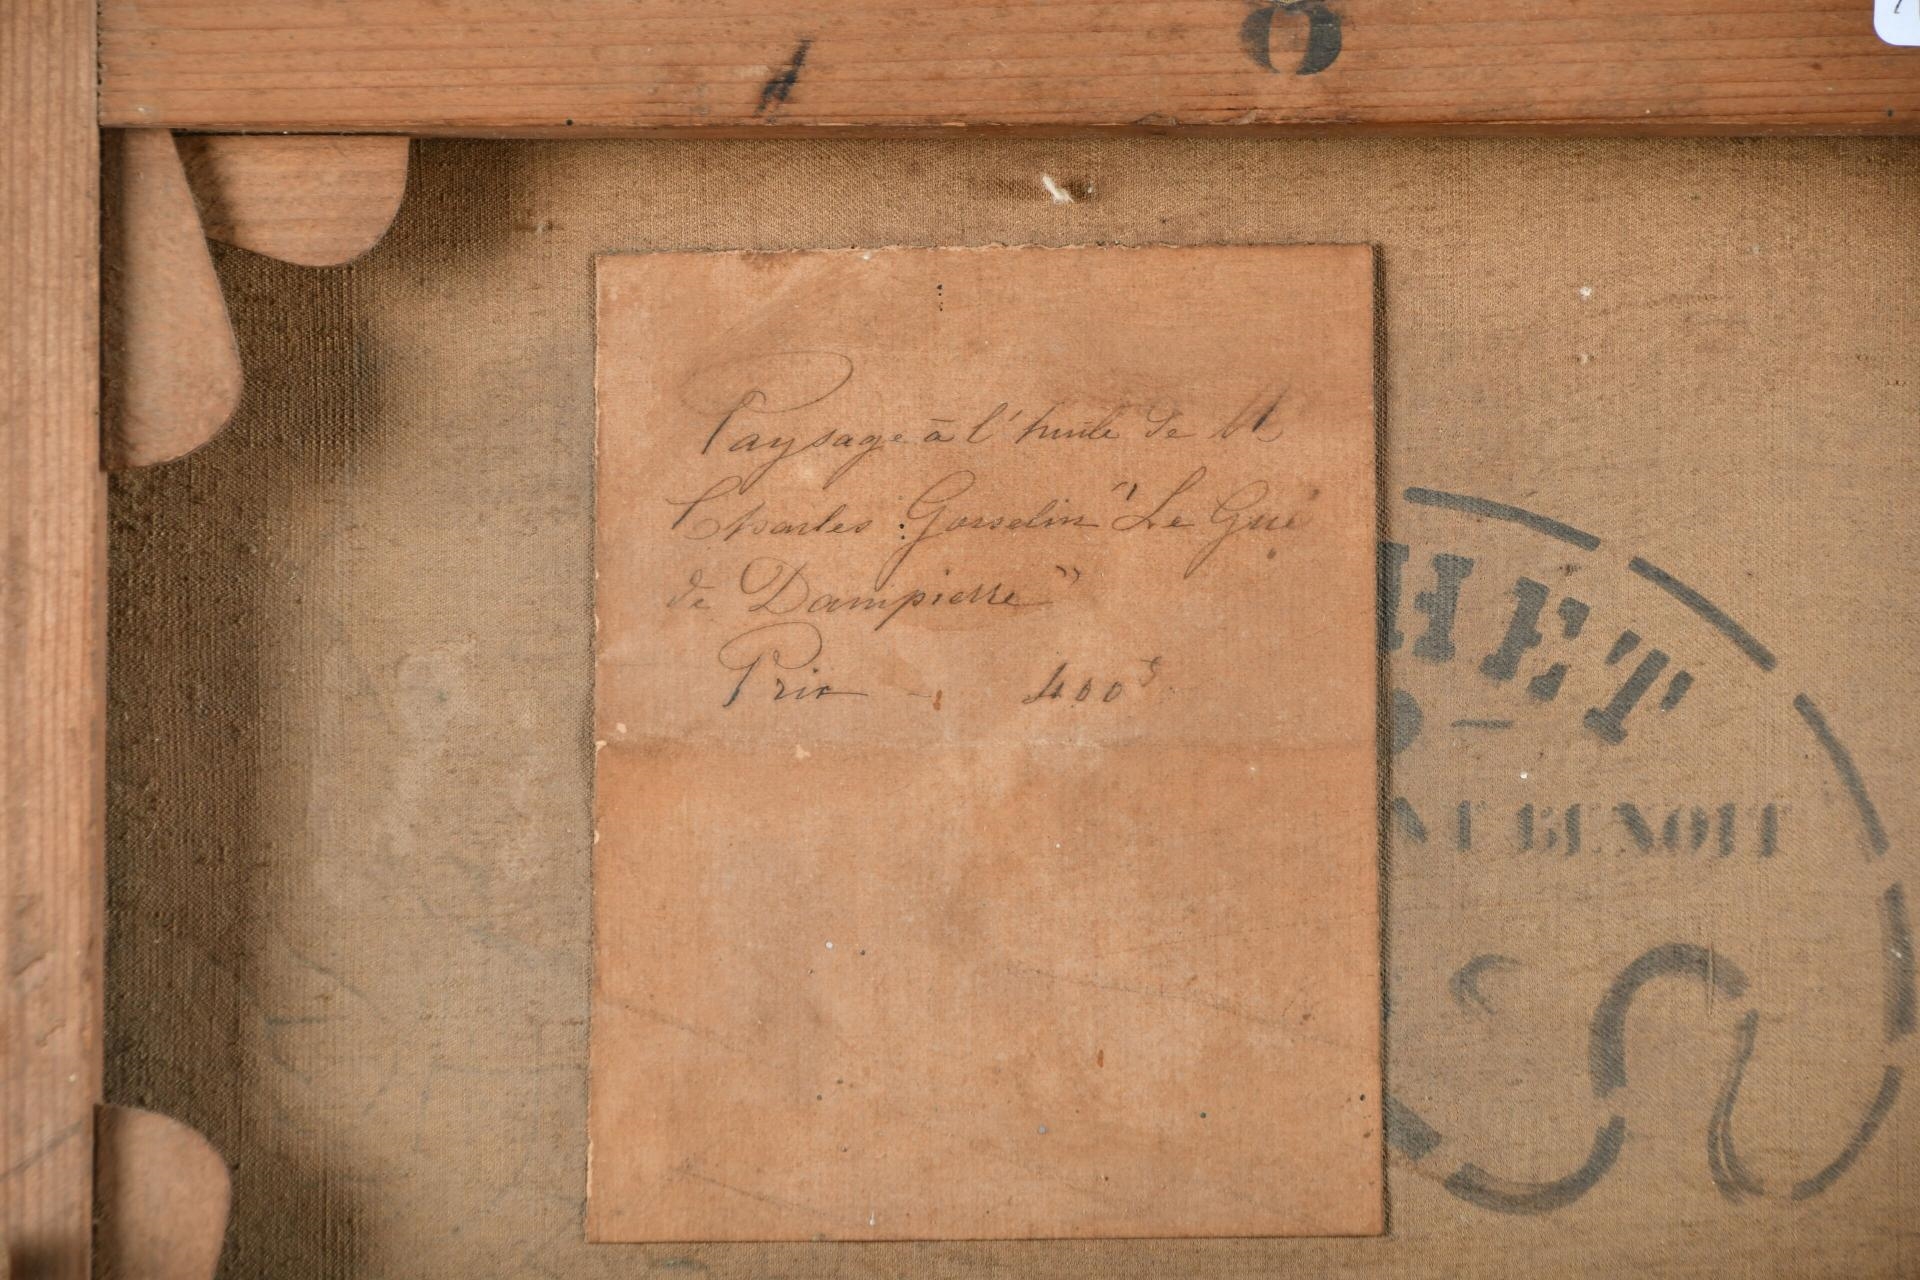 8
Paysage à l'huile de M
Charles Gosselin "Le Gué
de Dampierre"
Prix - 400 f
HET
BENOIT